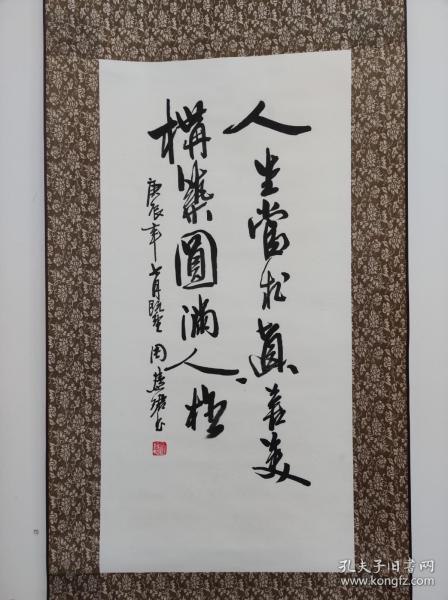 人生當於真善美
構築圓滿人格
庚辰年七月
周
孔夫子旧书网
www.kongfz.com